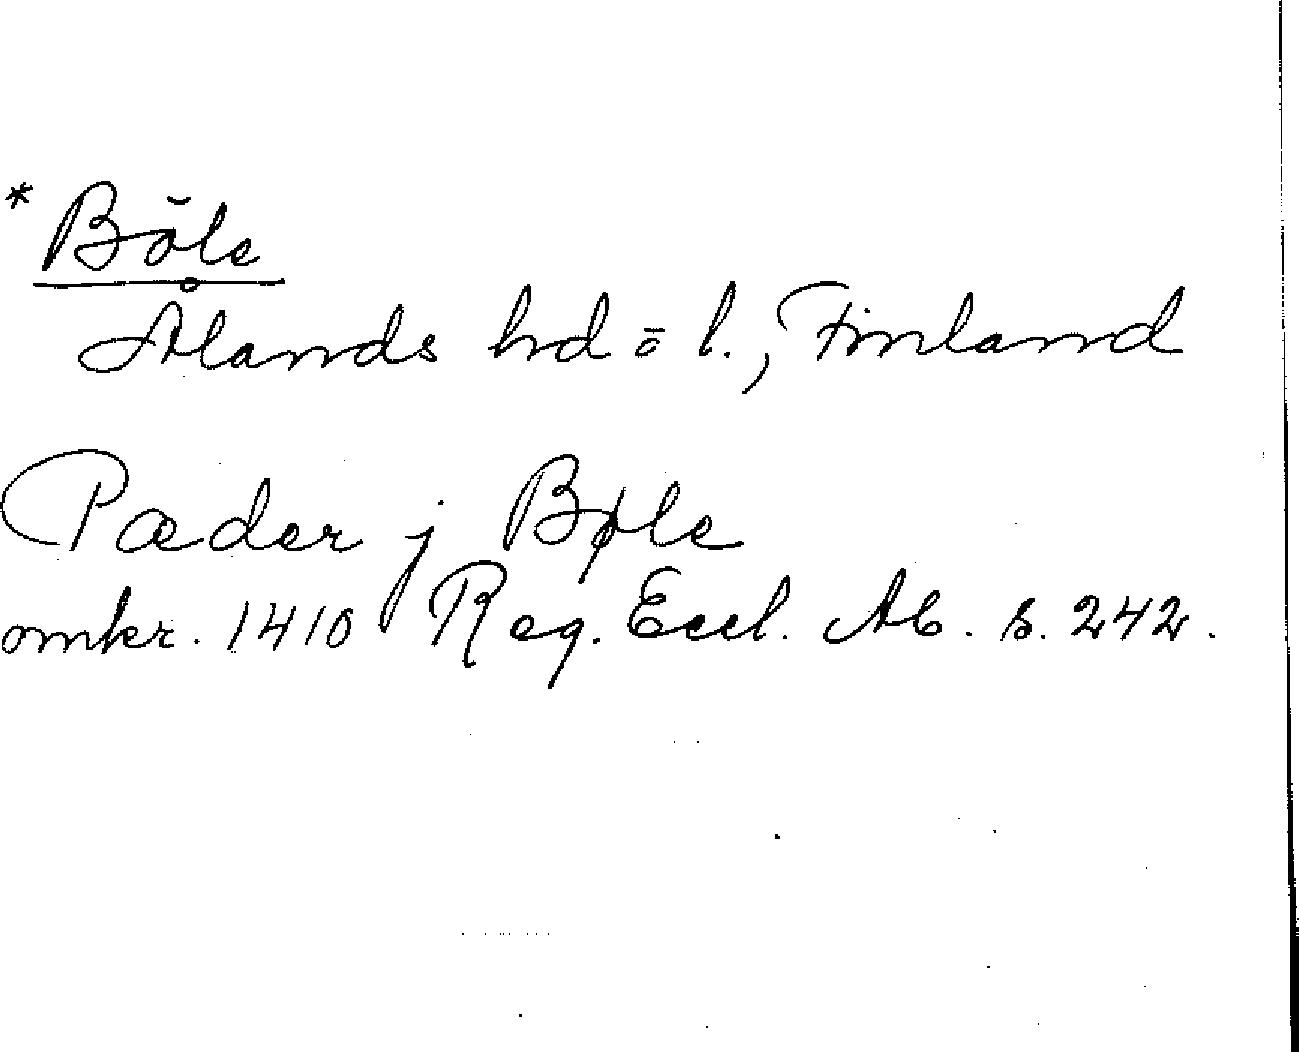 * Böle
Ålands hd o l., Finland
Pæder j Bøle
omkr. 1410 Reg. Eccl. Ab. s. 242.